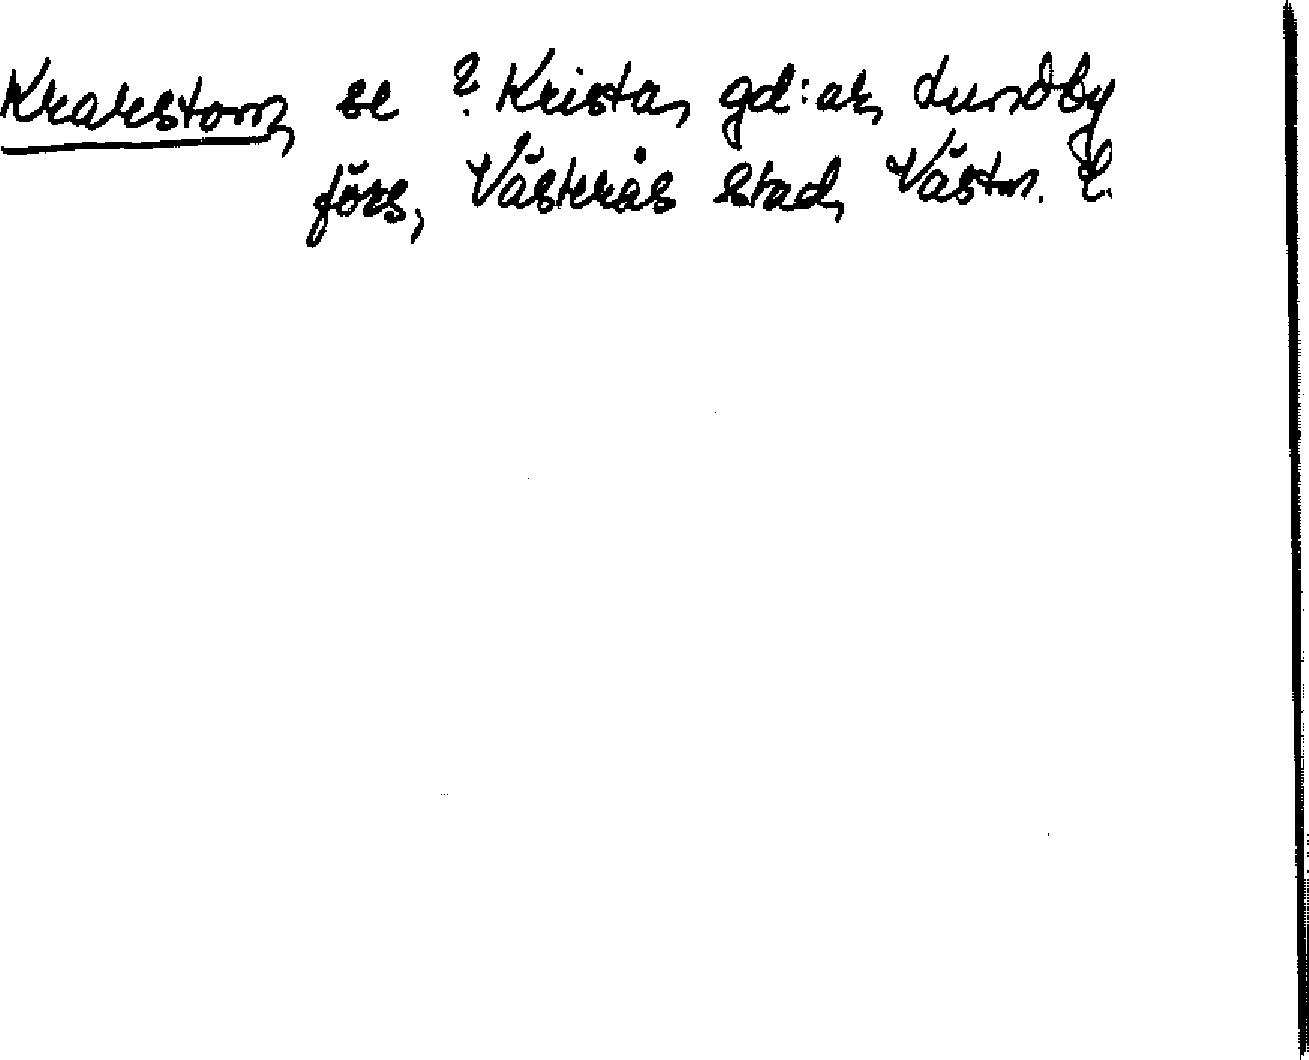 Krakstorp, se ? Krista, gd:ar, Lundby
förs, Västerås stad, Västm. l.